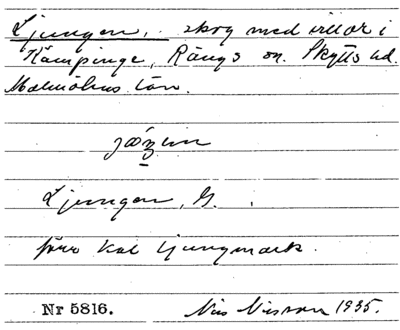 Ljungen, skog med villor i
Kämpinge, Rängs sn. Skytts hd.
Malmöhus län.
Ljungen, G.
förr kal ljungmark.
Nr 5816. Nils Nilsson 1935.